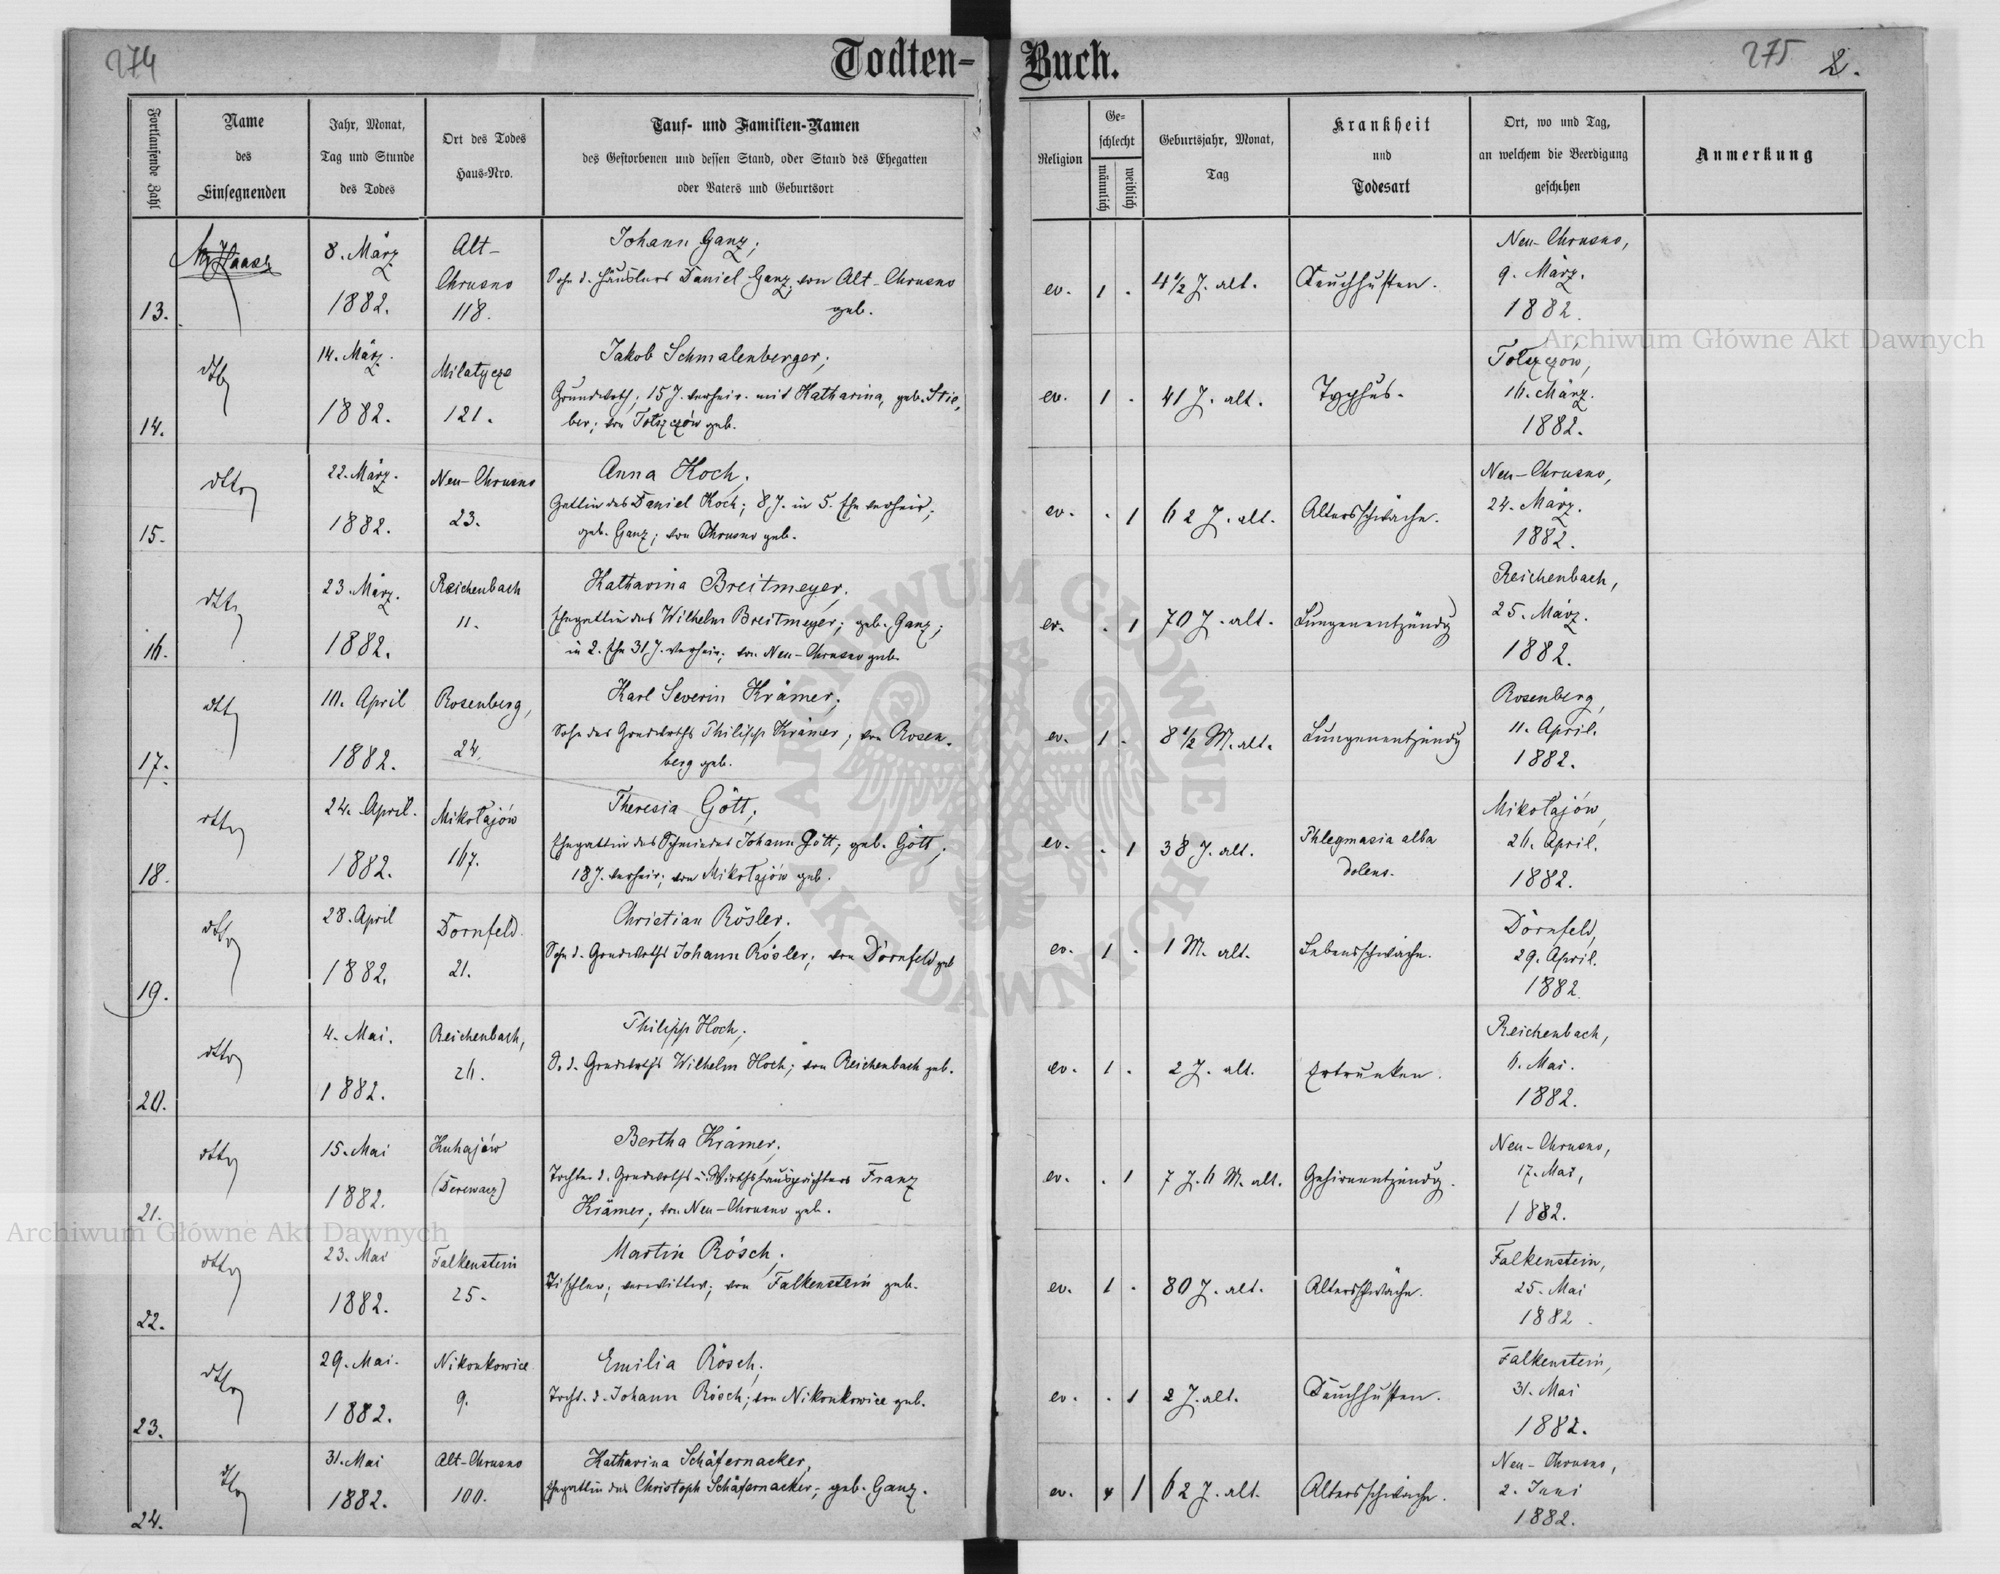 274
Todten-Buch.
275 2.
Fortlaufende Zahl
Name
des
Einsegnenden
Jahr, Monat,
Tag und Stunde
des Todes
Ort des Todes
Haus-Nro.
Tauf- und Familien-Namen
des Gestorbenen und dessen Stand, oder Stand des Ehegatten
oder Vaters und Geburtsort
Religion
Ge-
schlecht
männlich
weiblich
Geburtsjahr, Monat,
Tag
Krankheit
und
Todesart
Ort, wo und Tag,
an welchem die Beerdigung
geschehen
Anmerkung
13.
8. März
1882.
Alt-
Chrusno
118.
Johann Ganz,
Sohn d. Häuslers Daniel Ganz, von Alt-Chrusno
geb.
ev. 1 .
4 1/2 J. alt.
Keuchhusten.
Neu-Chrusno,
9. März.
1882.
14.
dtto
14. März.
1882.
Milatycze
121.
Jakob Schmalenberger,
Grundwirth; 15 J. verheir. mit Katharina, geb. Stie,
ber; von Tołszczów geb.
ev. 1 .
41 J. alt.
Typhus.
Tołszczów,
16. März.
1882.
15.
dtto
22. März.
1882.
Neu-Chrusno
23.
Anna Koch,
Gattin des Daniel Koch; 8 J. in 5. Ehe verheir;
geb. Ganz; von Chrusno geb.
ev. . 1
62 J. alt.
Altersschwäche.
Neu-Chrusno,
24. März.
1882.
16.
dtto
23. März.
1882.
Reichenbach
11.
Katharina Breitmeyer,
Ehegattin des Wilhelm Breitmeyer; geb. Ganz;
in 2. Ehe 31 J. verheir; von Neu-Chrusno geb.
ev. . 1
70 J. alt.
Lungenentzündg
Reichenbach,
25. März.
1882.
17.
dtto
10. April
1882.
Rosenberg,
24.
Karl Severin Krämer,
Sohn des Grundwirths Philipp Krämer; von Rosen-
berg geb.
ev. 1 .
8 1/2 M. alt.
Lungenentzündg
Rosenberg,
11. April.
1882.
18.
dtto
24. April.
1882.
Mikołajów
167.
Theresia Gött,
Ehegattin des Schmiedes Johann Gött; geb. Gött;
18 J. verheir; von Mikołajów geb.
ev. . 1
38 J. alt.
Phlegmasia alba
dolens.
Mikołajów,
26. April.
1882.
19.
dtto
28. April
1882.
Dornfeld
21.
Christian Rösler.
Sohn d. Grundwirths Johann Rösler; von Dornfeld geb
ev. 1 .
1 M. alt.
Lebensschwäche.
Dornfeld,
29. April.
1882.
20.
dtto
4. Mai.
1882.
Reichenbach,
26.
Philipp Hoch,
S. d. Grundwirths Wilhelm Hoch; von Reichenbach geb.
ev. 1 .
2 J. alt.
Ertrunken.
Reichenbach,
6. Mai.
1882.
21.
dtto
15. Mai
1882.
Kuhajów
(Derewacz)
Bertha Krämer,
Tochter d. Grundwirths u. Wirthshauspächters Franz
Krämer, von Neu-Chrusno geb.
ev. . 1
7 J. 6 M. alt.
Gehirnentzündg.
Neu-Chrusno,
17. Mai,
1882.
22.
dtto
23. Mai
1882.
Falkenstein
25.
Martin Rösch,
Tischler; verwittw; von Falkenstein geb.
ev. 1 .
80 J. alt.
Altersschwäche.
Falkenstein,
25. Mai
1882.
23.
dtto
29. Mai.
1882.
Nikonkowice
9.
Emilia Rösch,
Tocht. d. Johann Rösch; von Nikonkowice geb.
ev. . 1
2 J. alt.
Keuchhusten.
Falkenstein,
31. Mai
1882.
24.
dtto
31. Mai
1882.
Alt-Chrusno
100.
Katharina Schäfernacker,
Ehegattin des Christoph Schäfernacker; geb. Ganz.
ev. 1
62 J. alt.
Altersschwäche.
Neu-Chrusno,
2. Juni
1882.
Archiwum Główne Akt Dawnych
Archiwum Główne Akt Dawnych
ARCHIWUM GŁÓWNE AKT DAWNYCH